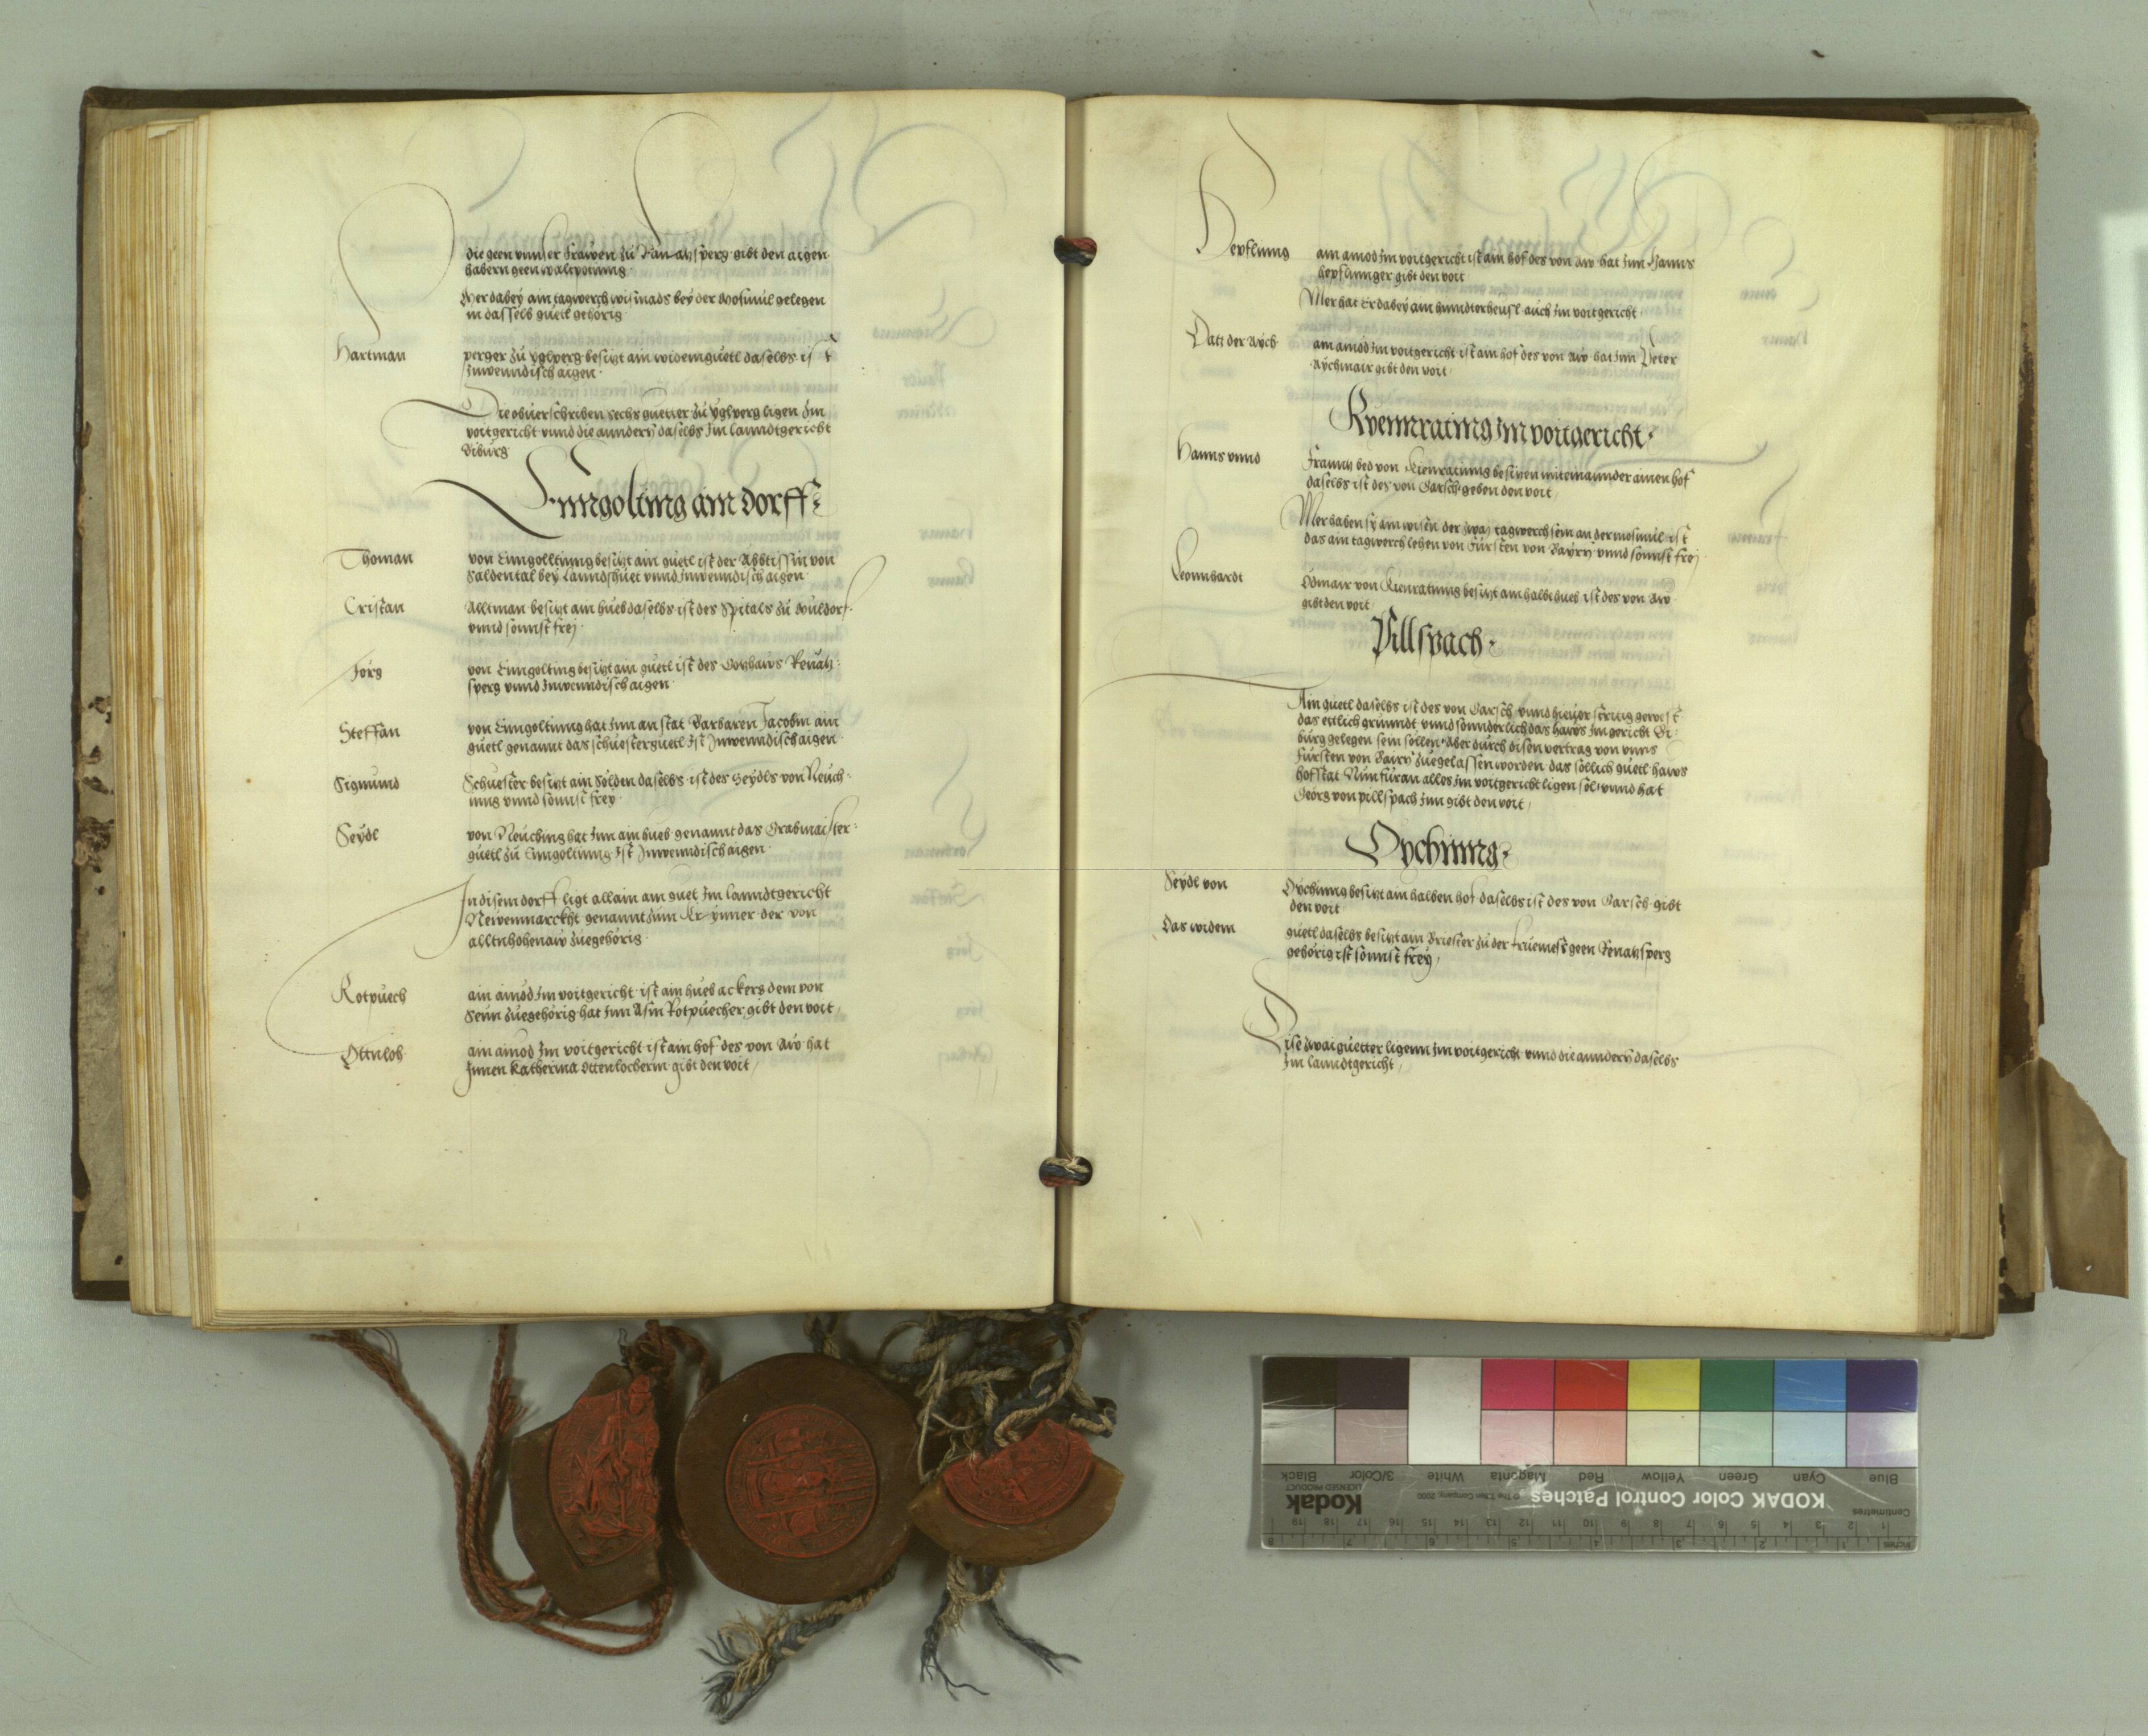 die geen unnser frawen zu Ranatzsperg gibt den aigen
habern geen waltpotnung
Mer dabey ain tagwerch wismads bey der Mosmül gelegen
in dasselb guetl gehörig
Hartman perger zu Yglperg besitzt ain widemguetl daselbs ist
Inwenndisch aigen
Die obuerschriben sechs guetter zu Yglperg ligen Im
voitgericht vnnd die anndern daselbs Im lanndtgericht
Biburg
Enngolting ain dorff
Thoman von Enngolltinng besitzt ain guetl ist der Abbtissin von
Saldental bey Lanndshuet vnnd Inwenndisch aigen
Cristan Alltman besitzt ain hueb daselbs ist des Spitals zu Muldorf
vnnd sonnst frej
Jörg von Enngolting besitzt ain guetl ist des Gotzhaws Renatz
sperg vnnd Inwenndisch aigen
Steffan von Enngoltinng hat Inn an stat Barbaren Jacobin ain
guetl genannt das schuesterguetl Ist Inwenndisch aigen
Sigmund Schuester besitzt ain Sölden daselbs ist des Seydls von Neuch
inng vnnd sonnst frey
Seydl von Neuching hat Inn ain hueb genannt das Grabmaister
guetl zu Enngoltinng Ist Inwenndisch aigen
In disem dorff ligt allain ain guet Im lanndtgericht
Newenmarckht genannt zum der von
alltnhohenaw zuegehörig
Rotpuech ain ainöd Im voitgericht ist ain hueb ackers dem von
Senn zuegehörig hat Inn Asm Rotpuecher gibt den voit
Ottnloh ain ainod Im voitgericht ist ain hof des von Aw hat
Innen Katherina Ottenlocherin gibt den voit
Hepflinng ain ainod Im voitgericht ist ain hof des von Aw hat Inn Hanns
hepflinnger gibt den voit
Mer hat Er dabey ain hewsl auch Im voitgericht
Datz der Aych ain ainod Im voitgericht ist ain hof des von Aw hat Inn Peter
Aychmair gibt den voit
Kyennrating Im voitgericht
Hanns vnnd Franntz bed von Kienratinng besitzen miteinannder ainen hof
daselbs ist des von Garsch geben den voit
Mer haben sy ain wisen der zway tagwerch sein an der mosmül ist
das ain tagwerch lehen von Fürsten von Bayrn vnnd sonnst frej
Leonnhardt Ödmair von Kienratinng besitzt ain halbe hueb ist des von Aw
gibt den voit
Pillspach
Ain guetl daselbs ist des von Garsch vnnd hieuor stritig gewest
das ettlich grunndt vnnd sonnderlich das haws Im gericht Bi
burg gelegen sein sollen Aber durch disen vertrag von vnns
Fürsten von Bairn zuegelassen worden das söllich guetl haws
hofstat Nun füran alles Im voitgericht ligen söl vnnd hat
Georg von pillspach Inn gibt den voit
Oychinng
Seydl von Oychinng besitzt ain halben hof daselbs ist des von Garsch gibt
den voit
Das widem guetl daselbs besitzt ain Briester zu der Fruemess geen Renatzsperg
gehörig ist sonnst frey
Dise zwai guetter ligenn Im voitgericht vnnd die anndern daselbs
Im lanndtgericht
Blue Cyan Green Yellow Red Magenta White 3/Color Black
KODAK Color Control Patches
© The Tiffen Company, 2000
Kodak
LICENSED PRODUCT
Centimetres
1 2 3 4 5 6 7 8 9 10 11 12 13 14 15 16 17 18 19
Inches
1 2 3 4 5 6 7 8